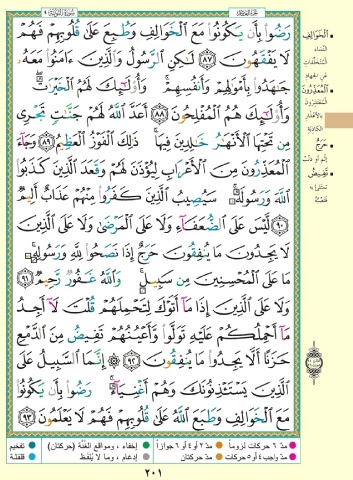 سورة التوبة ٩
رَضُوا۟ بِأَن يَكُونُوا۟ مَعَ ٱلْخَوَالِفِ وَطُبِعَ عَلَىٰ قُلُوبِهِمْ فَهُمْ
لَا يَفْقَهُونَ ﴿٨٧﴾ لَٰكِنِ ٱلرَّسُولُ وَٱلَّذِينَ ءَامَنُوا۟ مَعَهُۥ
جَٰهَدُوا۟ بِأَمْوَٰلِهِمْ وَأَنفُسِهِمْ ۚ وَأُو۟لَٰٓئِكَ لَهُمُ ٱلْخَيْرَٰتُ ۖ
وَأُو۟لَٰٓئِكَ هُمُ ٱلْمُفْلِحُونَ ﴿٨٨﴾ أَعَدَّ ٱللَّهُ لَهُمْ جَنَّٰتٍ تَجْرِى
مِن تَحْتِهَا ٱلْأَنْهَٰرُ خَٰلِدِينَ فِيهَا ۚ ذَٰلِكَ ٱلْفَوْزُ ٱلْعَظِيمُ ﴿٨٩﴾ وَجَآءَ
ٱلْمُعَذِّرُونَ مِنَ ٱلْأَعْرَابِ لِيُؤْذَنَ لَهُمْ وَقَعَدَ ٱلَّذِينَ كَذَبُوا۟
ٱللَّهَ وَرَسُولَهُۥ ۚ سَيُصِيبُ ٱلَّذِينَ كَفَرُوا۟ مِنْهُمْ عَذَابٌ أَلِيمٌ
﴿٩٠﴾ لَّيْسَ عَلَى ٱلضُّعَفَآءِ وَلَا عَلَى ٱلْمَرْضَىٰ وَلَا عَلَى ٱلَّذِينَ
لَا يَجِدُونَ مَا يُنفِقُونَ حَرَجٌ إِذَا نَصَحُوا۟ لِلَّهِ وَرَسُولِهِۦ ۚ
مَا عَلَى ٱلْمُحْسِنِينَ مِن سَبِيلٍ ۚ وَٱللَّهُ غَفُورٌ رَّحِيمٌ ﴿٩١﴾
وَلَا عَلَى ٱلَّذِينَ إِذَا مَآ أَتَوْكَ لِتَحْمِلَهُمْ قُلْتَ لَآ أَجِدُ
مَآ أَحْمِلُكُمْ عَلَيْهِ تَوَلَّوا۟ وَّأَعْيُنُهُمْ تَفِيضُ مِنَ ٱلدَّمْعِ
حَزَنًا أَلَّا يَجِدُوا۟ مَا يُنفِقُونَ ﴿٩٢﴾ ۞ إِنَّمَا ٱلسَّبِيلُ عَلَى
ٱلَّذِينَ يَسْتَـْٔذِنُونَكَ وَهُمْ أَغْنِيَآءُ ۚ رَضُوا۟ بِأَن يَكُونُوا۟
مَعَ ٱلْخَوَالِفِ وَطَبَعَ ٱللَّهُ عَلَىٰ قُلُوبِهِمْ فَهُمْ لَا يَعْلَمُونَ ﴿٩٣﴾
الْخَوَالِفِ
النساء
المتخلفات
عن الجهاد
الْمُعَذِّرُونَ
بالأعذار
الكاذبة
حَرَجٌ
إثم أو ذنب
تَفِيضُ
تمتلئ به
فتصبه
مدّ ٦ حركات لزوماً
مدّ ٢ أو ٤ أو ٦ جوازاً
إخفاء، ومواقع الغُنَّة (حركتان)
تفخيم
مدّ واجب ٤ أو ٥ حركات
مدّ حركتان
إدغام، وما لا يُلفَظ
قلقلة
٢٠١